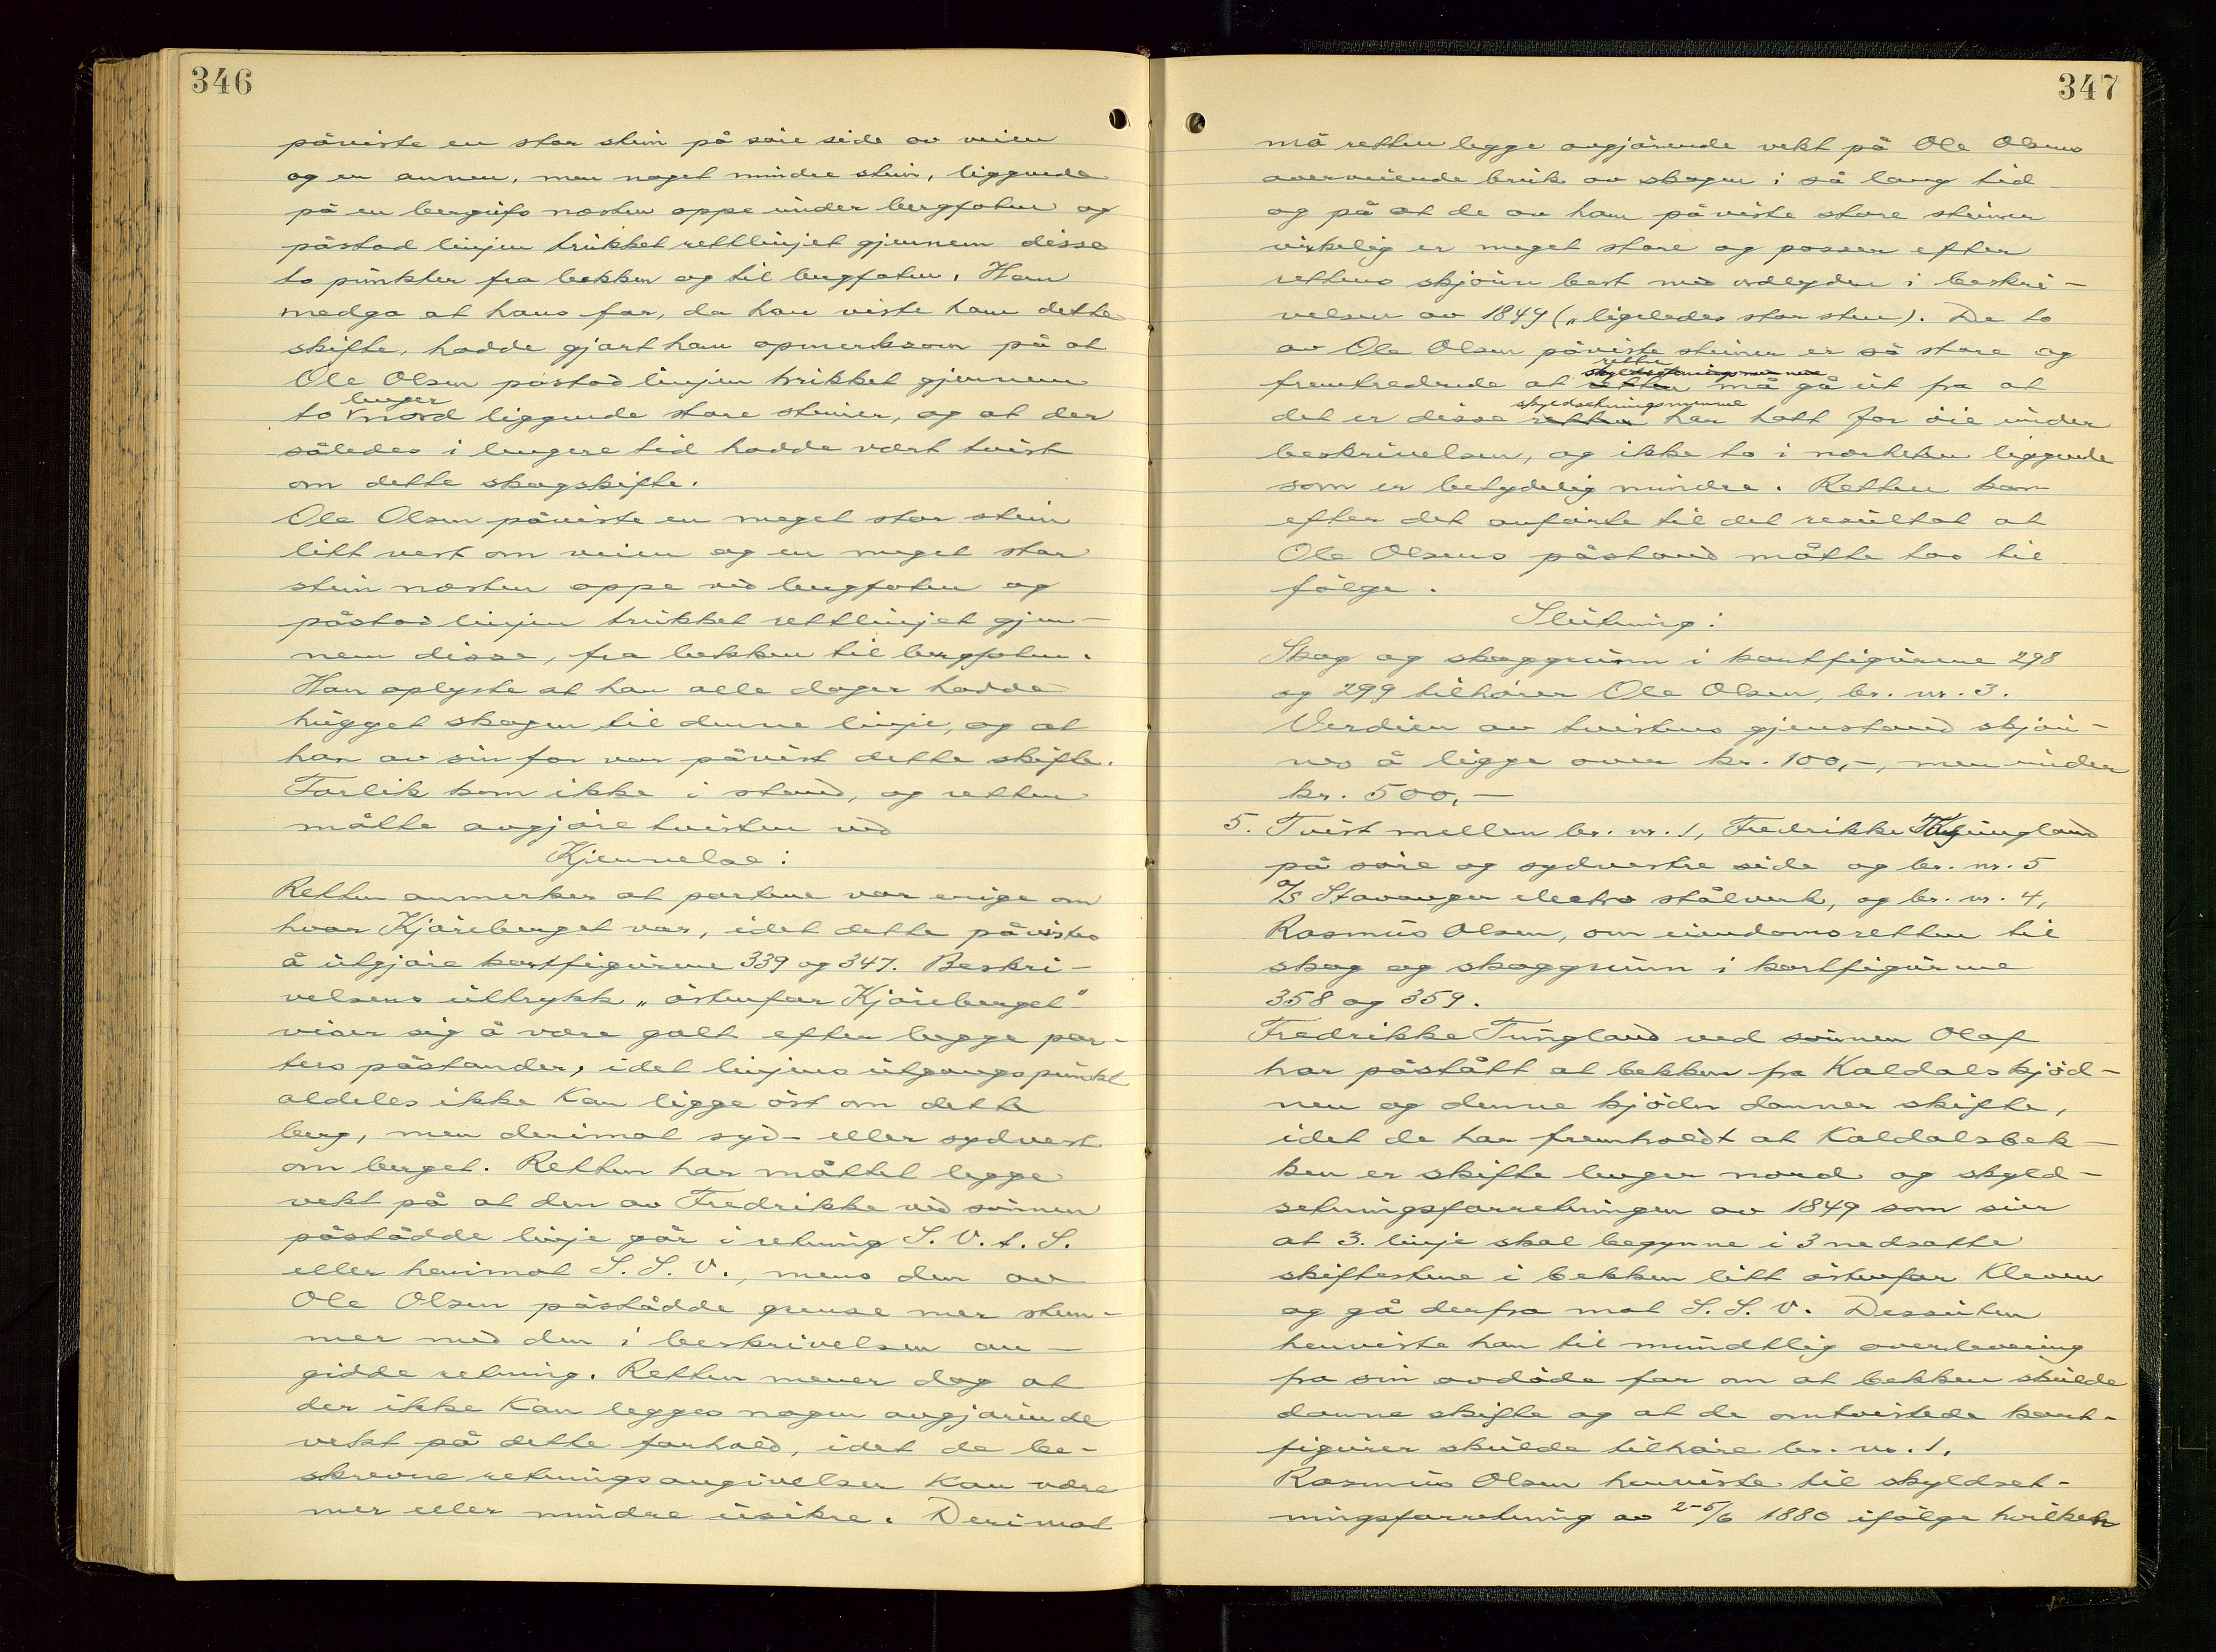 346
påviste en stor stein på søre side av veien
og en annen, men noget mindre stein, liggende
på en bergufs næsten oppe under bergfoten og
påstod linjen trukket rettlinjet gjennem disse
to punkter fra bekken og til bergfoten. Han
medga at hans far, da han viste ham dette
skifte, hadde gjort ham opmerksom på at
Ole Olsen påstod linjen trukket gjennem
to lenger nord liggende store steiner, og at der
således i lengere tid hadde vært tvist
om dette skogskifte.
Ole Olsen påviste en meget stor stein
litt vest om veien og en meget stor
stein næsten oppe ved bergfoten og
påstod linjen trukket rettlinjet gjen-
nem disse, fra bekken til bergfoten.
Han oplyste at han alle dager hadde
hugget skogen til denne linje, og at
han av sin far var påvist dette skifte.
Forlik kom ikke i stand, og retten
måtte avgjøre tvisten ved
Kjennelse:
Retten anmerker at partene var enige om
hvor Kjøreberget var, idet dette påvistes
å utgjøre kartfigurene 339 og 347. Beskri-
velsens uttrykk „østenfor Kjøreberget"
viser sig å være galt efter begge par-
ters påstander, idet linjens utgangspunkt
aldeles ikke kan ligge øst om dette
berg, men derimot syd- eller sydvest
om berget. Retten har måttet legge
vekt på at den av Fredrikke ved sønnen
påstådde linje går i retning S. V. t. S.
eller henimot S. S. V., mens den av
Ole Olsen påstådde grense mer stem-
mer med den i beskrivelsen an-
gidde retning. Retten mener dog at
der ikke kan legges nogen avgjørende
vekt på dette forhold, idet de be-
skrevne retningsangivelser kan være
mer eller mindre usikre. Derimot
347
må retten legge avgjørende vekt på Ole Olsens
overveiende bruk av skogen i så lang tid
og på at de av ham påviste store steiner
virkelig er meget store og passer efter
rettens skjønn best med ordlyden i beskri-
velsen av 1849 („ligeledes stor sten). De to
av Ole Olsen påviste steiner er så store og
retten
skyldsetningsmennene
fremtredende at retten må gå ut fra at
skyldsetningsmennene
det er disse retten har hatt for øie under
beskrivelsen, og ikke to i nærheten liggende
som er betydelig mindre. Retten kom
efter det anførte til det resultat at
Ole Olsens påstand måtte tas til
følge.
Slutning:
Skog og skoggrunn i kartfigurene 298
og 299 tilhører Ole Olsen, br. nr. 3.
Verdien av tvistens gjenstand skjøn-
nes å ligge over kr. 100,-, men under
kr. 500,-
5. Tvist mellem br. nr. 1, Fredrikke Tungland
på søre og sydvestre side og br. nr. 5
A/S Stavanger electro stålverk, og br. nr. 4,
Rasmus Olsen, om eiendomsretten til
skog og skoggrunn i kartfigurene
358 og 359.
Fredrikke Tungland ved sønnen Olaf
har påstått at bekken fra Kaldalskjød-
nen og denne kjødn danner skifte,
idet de har fremholdt at Kaldalsbek-
ken er skifte lenger nord og skyld-
setningsforretningen av 1849 som sier
at 3. linje skal begynne i 3 nedsatte
skiftestene i bekken litt østenfor Kleven
og gå derfra mot S. S. V. Dessuten
henviste han til mundtlig overlevering
fra sin avdøde far om at bekken skulde
danne skifte og at de omtvistede kart-
figurer skulde tilhøre br. nr. 1.
Rasmus Olsen henviste til skyldset-
ningsforretning av 25/6 1880 ifølge hvilken